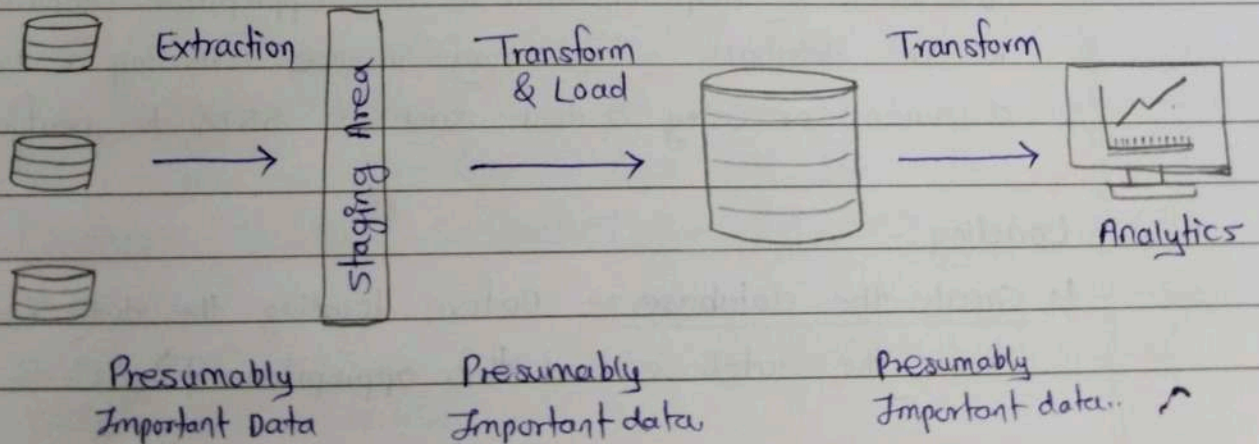 Extraction
Staging Area
Transform
& Load
Transform
Analytics
Presumably
Important Data
Presumably
Important data
Presumably
Important data..